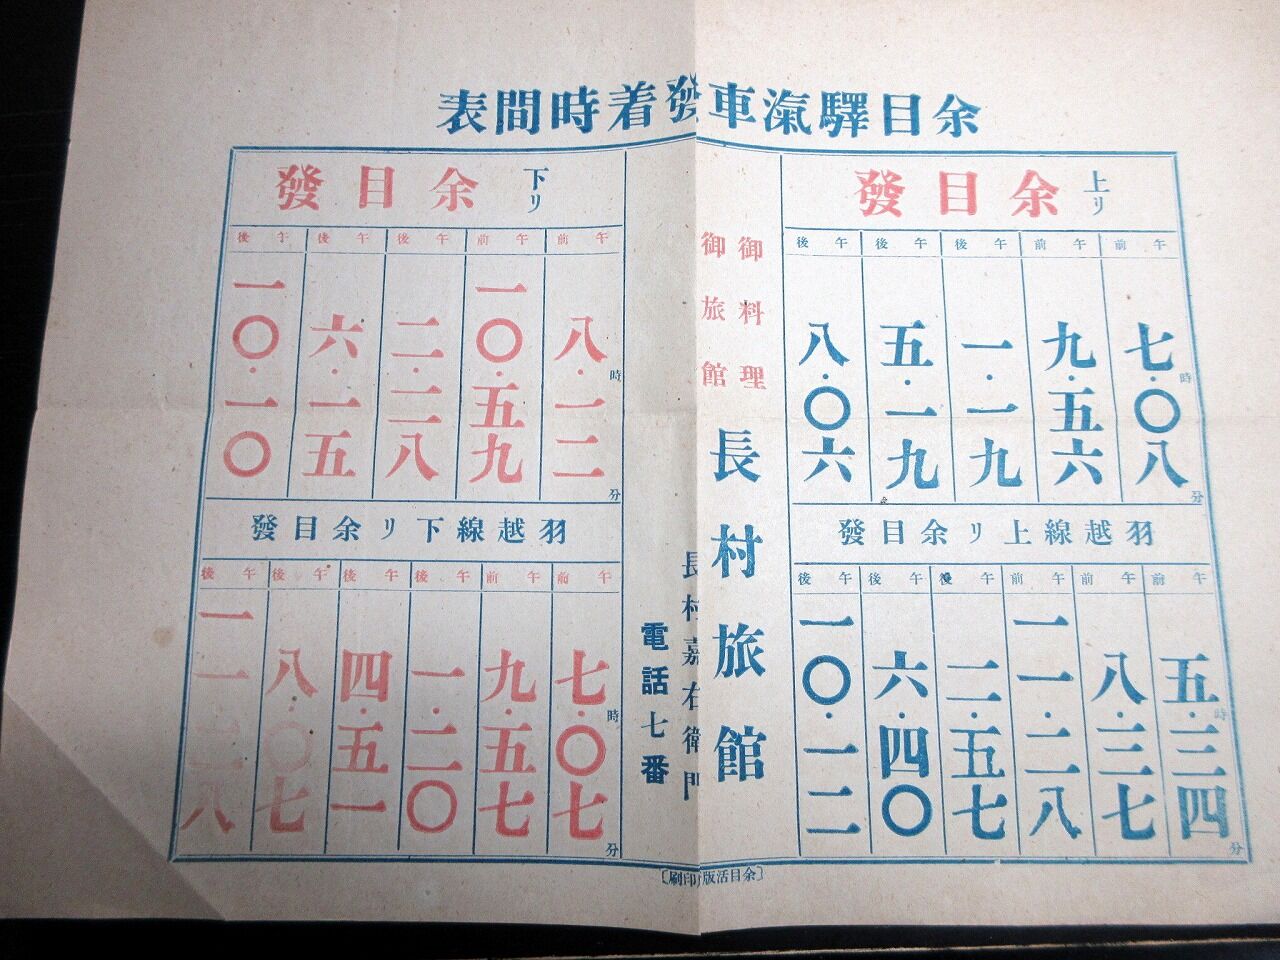 余目驛滊車發着時間表
上リ 余目發
午前 七時・〇八分
午前 九・五六
午後 一・一九
午後 五・一九
午後 八・〇六
羽越線上リ余目發
午前 五時・三四分
午前 八・三七
午前 一一・二八
午後 二・五七
午後 六・四〇
午後 一〇・一二
御料理
御旅館
長村旅館
長村嘉右衛門
電話七番
下リ 余目發
午前 八時・一二分
午前 一〇・五九
午後 二・二八
午後 六・一五
午後 一〇・一〇
羽越線下リ余目發
午前 七時・〇七分
午前 九・五七
午後 一・二〇
午後 四・五一
午後 八・〇七
午後 一一 八
〔余目活版印刷〕